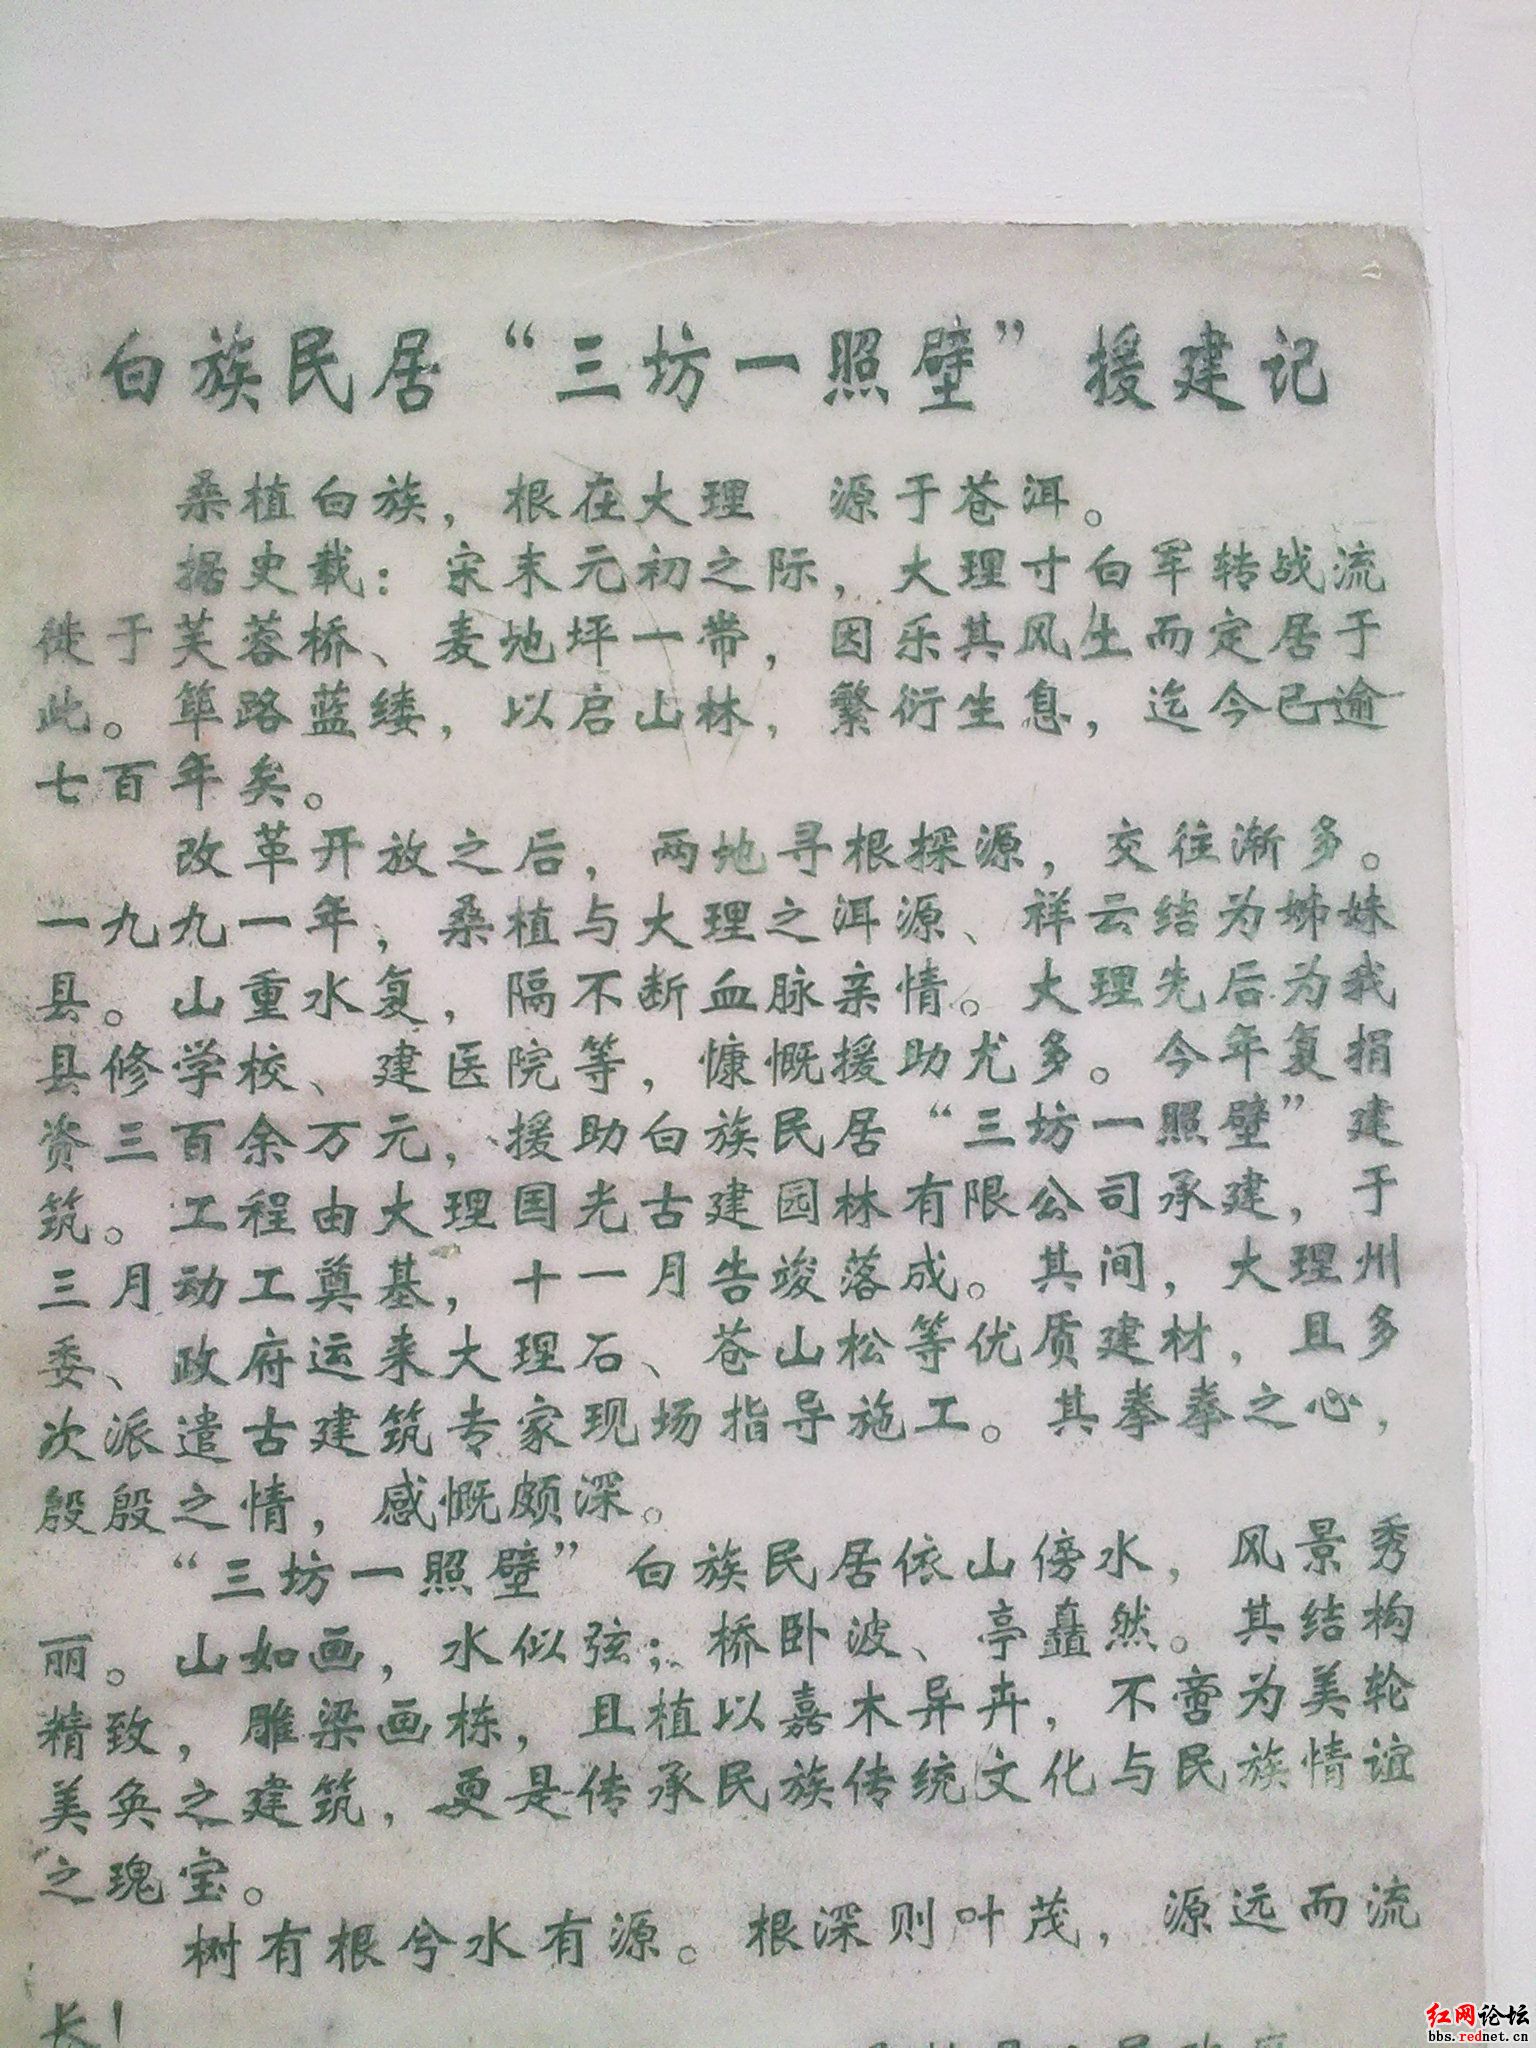 白族民居“三坊一照壁”援建记
桑植白族，根在大理 源于苍洱。
据史载：宋末元初之际，大理寸白军转战流
徙于芙蓉桥、麦地坪一带，因乐其风土而定居于
此。筚路蓝缕，以启山林，繁衍生息，迄今已逾
七百年矣。
改革开放之后，两地寻根探源，交往渐多。
一九九一年，桑植与大理之洱源、祥云结为姊妹
县。山重水复，隔不断血脉亲情。大理先后为我
县修学校、建医院等，慷慨援助尤多。今年复捐
资三百余万元，援助白族民居“三坊一照壁”建
筑。工程由大理国光古建园林有限公司承建，于
三月动工奠基，十一月告竣落成。其间，大理州
委、政府运来大理石、苍山松等优质建材，且多
次派遣古建筑专家现场指导施工。其拳拳之心，
殷殷之情，感慨颇深。
“三坊一照壁”白族民居依山傍水，风景秀
丽。山如画，水似弦；桥卧波、亭矗然。其结构
精致，雕梁画栋，且植以嘉木异卉，不啻为美轮
美奂之建筑，更是传承民族传统文化与民族情谊
之瑰宝。
树有根兮水有源。根深则叶茂，源远而流
长！
红网论坛
bbs.rednet.cn